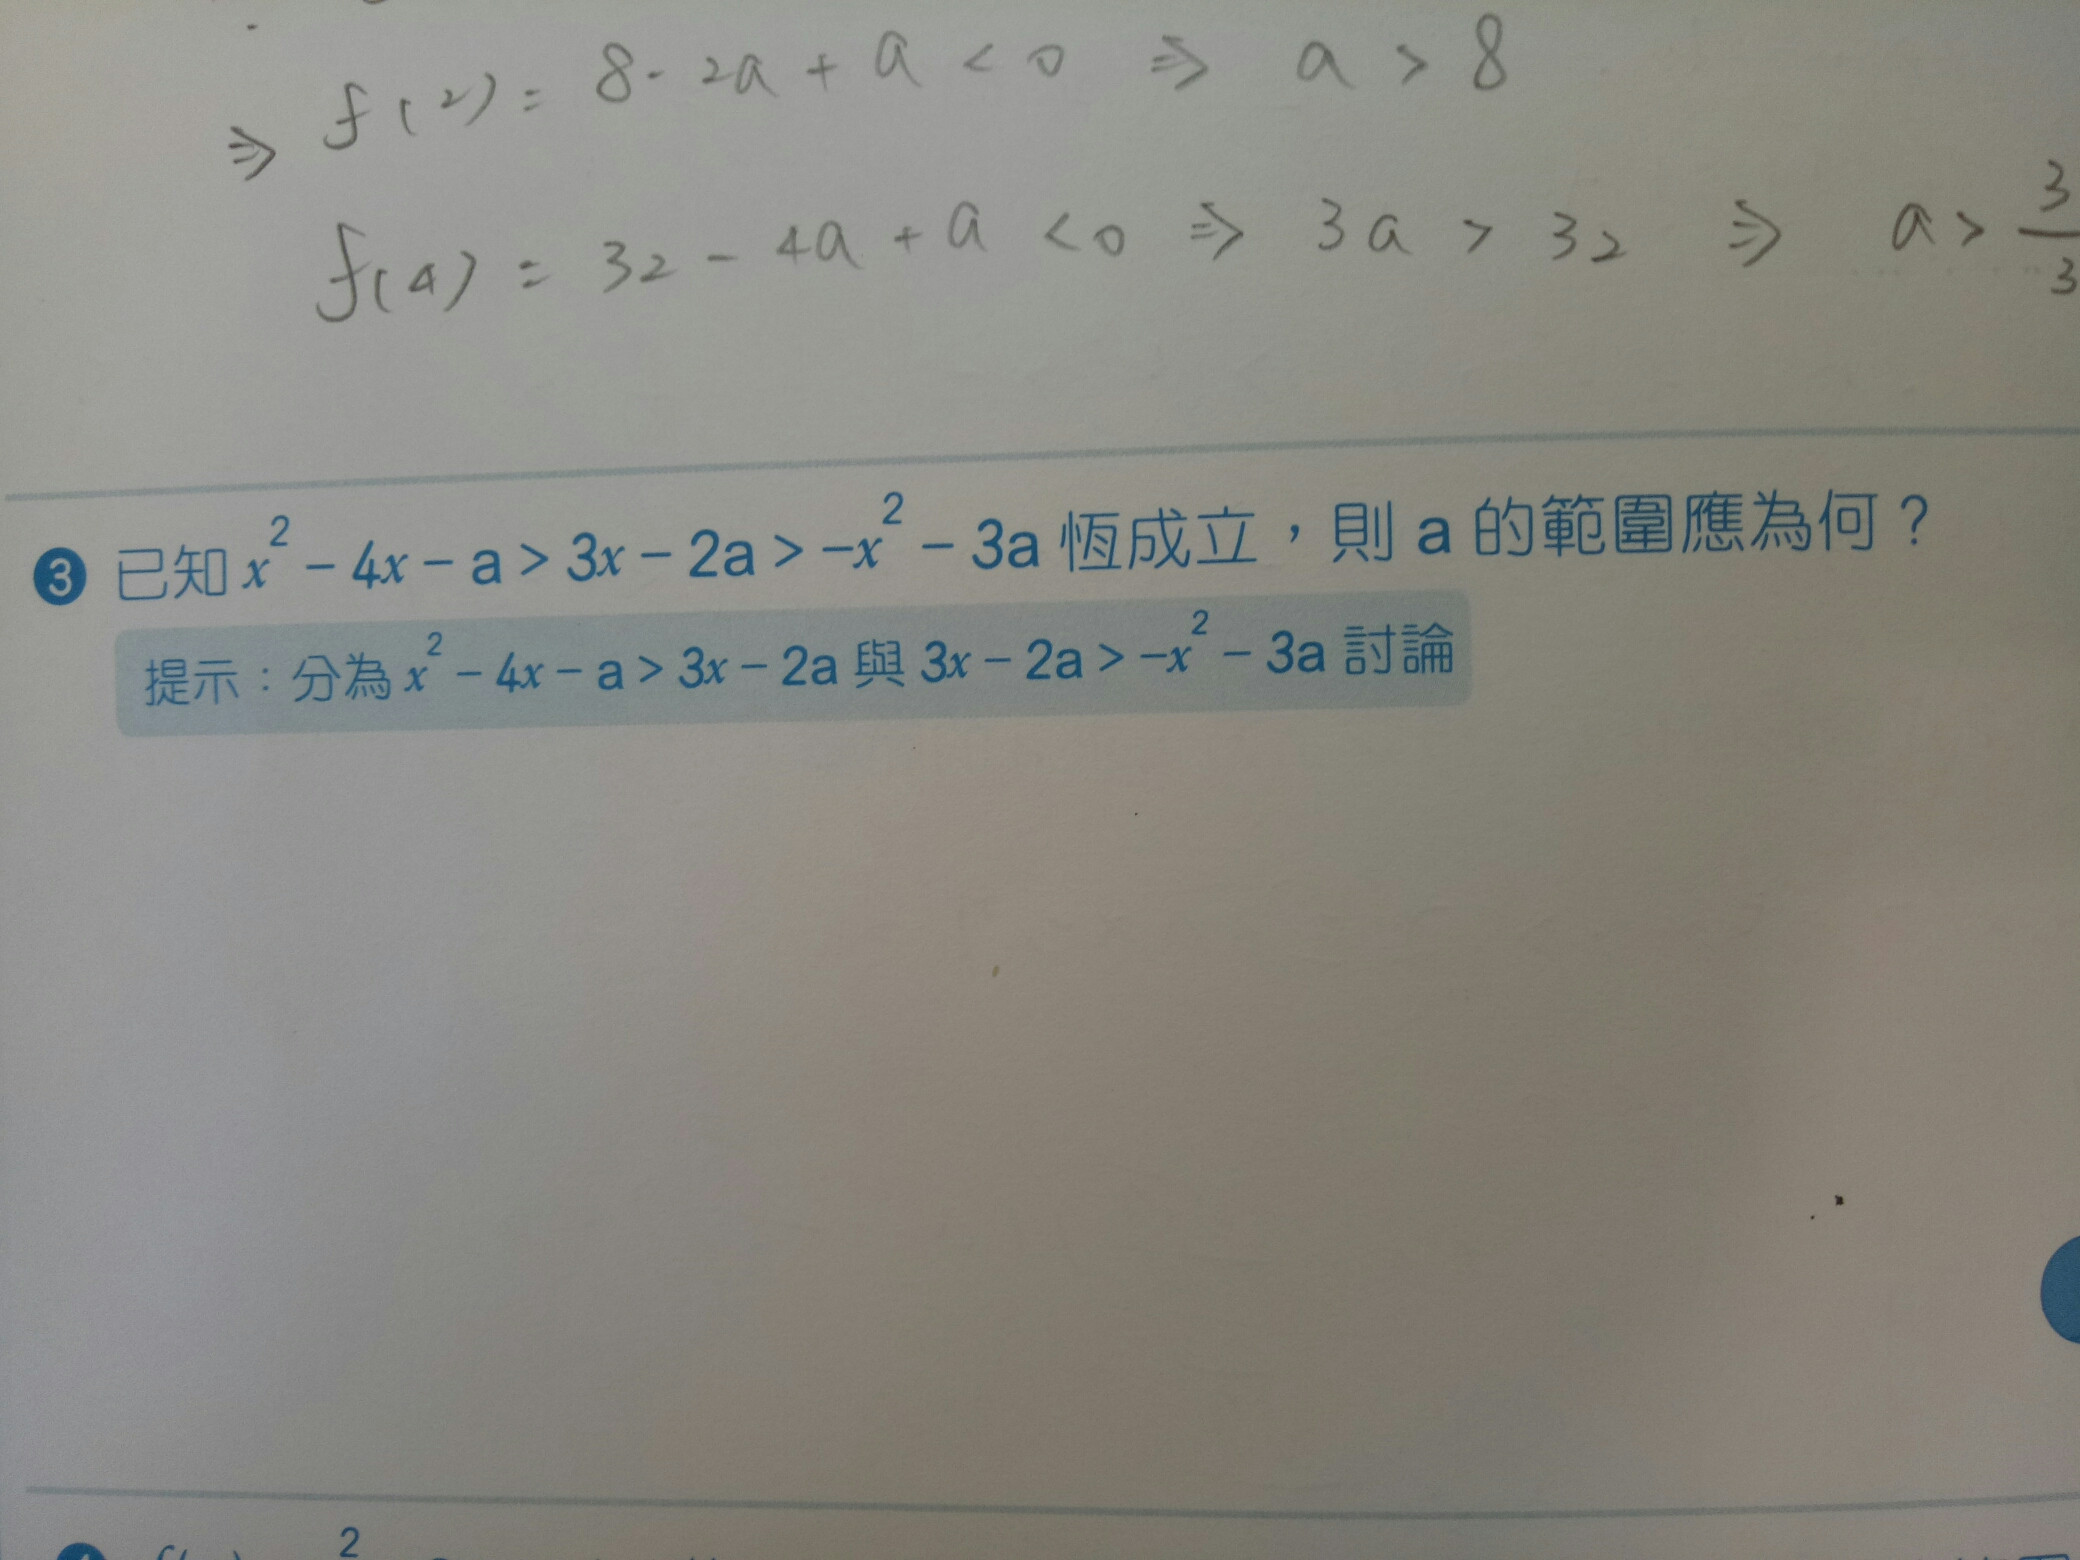 ⇒ f(2) = 8 - 2a + a < 0 ⇒ a > 8
f(4) = 32 - 4a + a < 0 ⇒ 3a > 32 ⇒ a > 3/3
❸ 已知 x² − 4x − a > 3x − 2a > −x² − 3a 恆成立，則 a 的範圍應為何？
提示：分為 x² − 4x − a > 3x − 2a 與 3x − 2a > −x² − 3a 討論
2